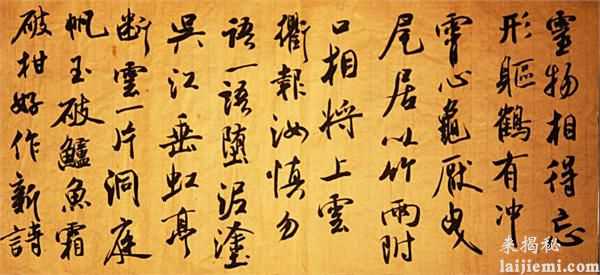 靈物相得忘
形軀鶴有冲
霄心龜厭曳
尾居以竹兩附
口相將上雲
衢報汝慎勿
語一語墮泥塗
吳江垂虹亭
断雲一片洞庭
帆玉破鱸魚霜
破柑好作新詩
来揭秘
laijiemi.com